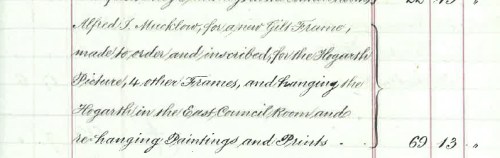 Alfred J. Mucklow, for a new Gilt Frame,
made to order and inscribed, for the Hogarth
Picture, 4 other Frames, and hanging the
Hogarth in the East Council Room and
re-hanging Paintings and Prints . . 69 13 "